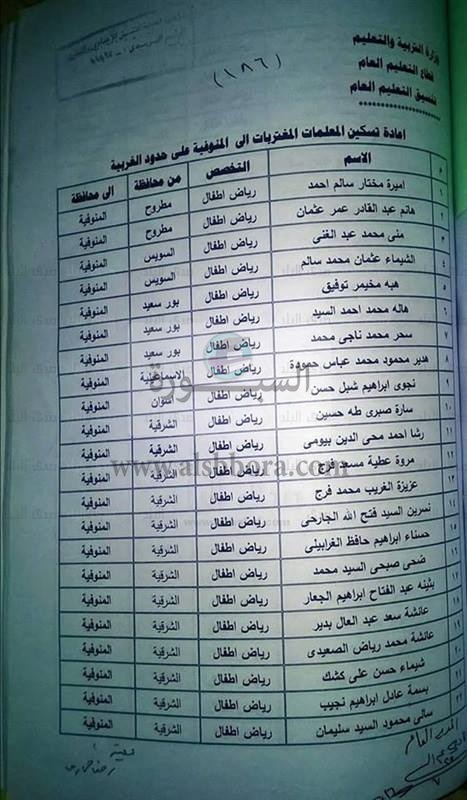 وزارة التربية والتعليم
قطاع التعليم العام
تنسيق التعليم العام
(١٨٦)
اعادة تسكين المعلمات المغتربات الى المنوفية على حدود الغربية
م الاسم التخصص من محافظة الى محافظة
١ اميرة مختار سالم احمد رياض اطفال مطروح المنوفية
٢ هانم عبد القادر عمر عثمان رياض اطفال مطروح المنوفية
٣ منى محمد عبد الغنى رياض اطفال السويس المنوفية
٤ الشيماء عثمان محمد سالم رياض اطفال السويس المنوفية
٥ هبه مخيمر توفيق رياض اطفال بور سعيد المنوفية
٦ هاله محمد احمد السيد رياض اطفال بور سعيد المنوفية
٧ سحر محمد ناجى محمد رياض اطفال بور سعيد المنوفية
٨ هدير محمود محمد عباس حمودة رياض اطفال الاسماعيلية المنوفية
٩ نجوى ابراهيم شبل حسن رياض اطفال اسوان المنوفية
١٠ سارة صبرى طه حسين رياض اطفال الشرقية المنوفية
١١ رشا احمد محى الدين بيومى رياض اطفال الشرقية المنوفية
١٢ مروة عطية مسعد فرج رياض اطفال الشرقية المنوفية
١٣ عزيزة الغريب محمد فرج رياض اطفال الشرقية المنوفية
١٤ نسرين السيد فتح الله الجارحى رياض اطفال الشرقية المنوفية
١٥ حسناء ابراهيم حافظ الغرابيلى رياض اطفال الشرقية المنوفية
١٦ ضحى صبحى السيد محمد رياض اطفال الشرقية المنوفية
١٧ بثينه عبد الفتاح ابراهيم الجعار رياض اطفال الشرقية المنوفية
١٨ عائشة سعد عبد العال بدير رياض اطفال الشرقية المنوفية
١٩ عائشة محمد رياض الصعيدى رياض اطفال الشرقية المنوفية
٢٠ شيماء حسن على كشك رياض اطفال الشرقية المنوفية
٢١ بسمة عادل ابراهيم نجيب رياض اطفال الشرقية المنوفية
٢٢ سالى محمود السيد سليمان رياض اطفال الشرقية المنوفية
السبورة
www.alsbbora.com
المدير العام